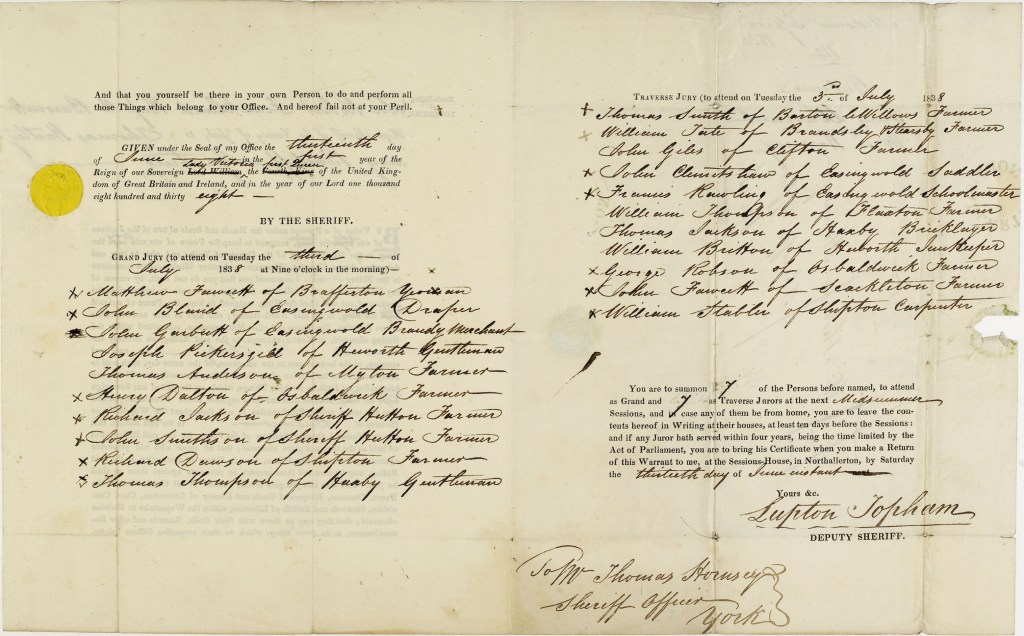 And that you yourself be there in your own Person to do and perform all
those Things which belong to your Office. And hereof fail not at your Peril.
GIVEN under the Seal of my Office the thirteenth day
of June in the first year of the
Reign of our Sovereign Lord William Lady Victoria the Fourth, King first Queen of the United King-
dom of Great Britain and Ireland, and in the year of our Lord one thousand
eight hundred and thirty eight —
BY THE SHERIFF.
GRAND JURY (to attend on Tuesday the third — of
July 1838 at Nine o'clock in the morning)—
x Matthew Fawcett of Brafferton Yeoman
x John Bland of Easingwold Draper
x John Garbutt of Easingwold Brandy Merchant
Joseph Pickersgill of Heworth Gentleman
Thomas Anderson of Myton Farmer
x Henry Dalton of Osbaldwick Farmer
x Richard Jackson of Sheriff Hutton Farmer
x John Smithson of Sheriff Hutton Farmer
x Richard Dawson of Shipton Farmer
Thomas Thompson of Haxby Gentleman
TRAVERSE JURY (to attend on Tuesday the 3rd of July 1838
x Thomas Smith of Barton le Willows Farmer
x William Tate of Brandsby & Stearsby Farmer
John Giles of Clifton Farmer
x John of Easingwold Saddler
x Francis Rawling of Easingwold Schoolmaster
William Thompson of Flaxton Farmer
Thomas Jackson of Haxby Bricklayer
William Britton of Huworth Innkeeper
x George Robson of Osbaldwick Farmer
x John Fawcett of Scackleton Farmer
x William Stabler of Shipton Carpenter
You are to summon 7 of the Persons before named, to attend
as Grand and 7 as Traverse Jurors at the next Midsummer
Sessions, and in case any of them be from home, you are to leave the con-
tents hereof in Writing at their houses, at least ten days before the Sessions:
and if any Juror hath served within four years, being the time limited by the
Act of Parliament, you are to bring his Certificate when you make a Return
of this Warrant to me, at the Sessions-House, in Northallerton, by Saturday
the thirtieth day of June instant
Yours &c.
Lupton Topham
DEPUTY SHERIFF.
To Mr Thomas Hornsey
Sheriff Officer
York